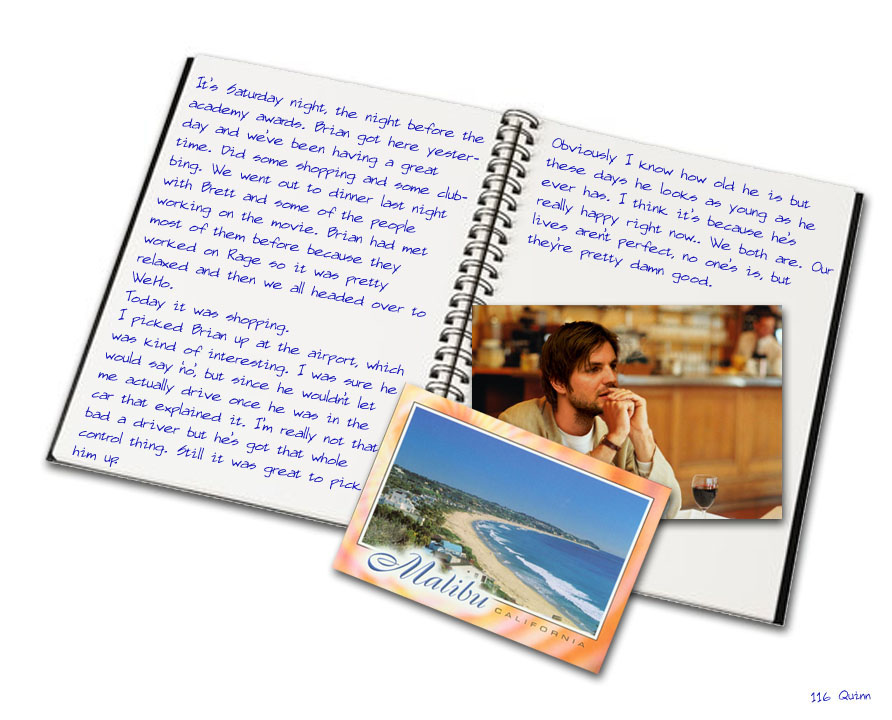 It's Saturday night, the night before the
academy awards. Brian got here yester-
day and we've been having a great
time. Did some shopping and some club-
bing. We went out to dinner last night
with Brett and some of the people
working on the movie. Brian had met
most of them before because they
worked on Rage so it was pretty
relaxed and then we all headed over to
WeHo.
Today it was shopping.
I picked Brian up at the airport, which
was kind of interesting. I was sure he
would say 'no', but since he wouldn't let
me actually drive once he was in the
car that explained it. I'm really not that
bad a driver but he's got that whole
control thing. Still it was great to pick
him up.
Obviously I know how old he is but
these days he looks as young as he
ever has. I think it's because he's
really happy right now.. We both are. Our
lives aren't perfect, no one's is, but
they're pretty damn good.
Malibu
CALIFORNIA
116 Quinn